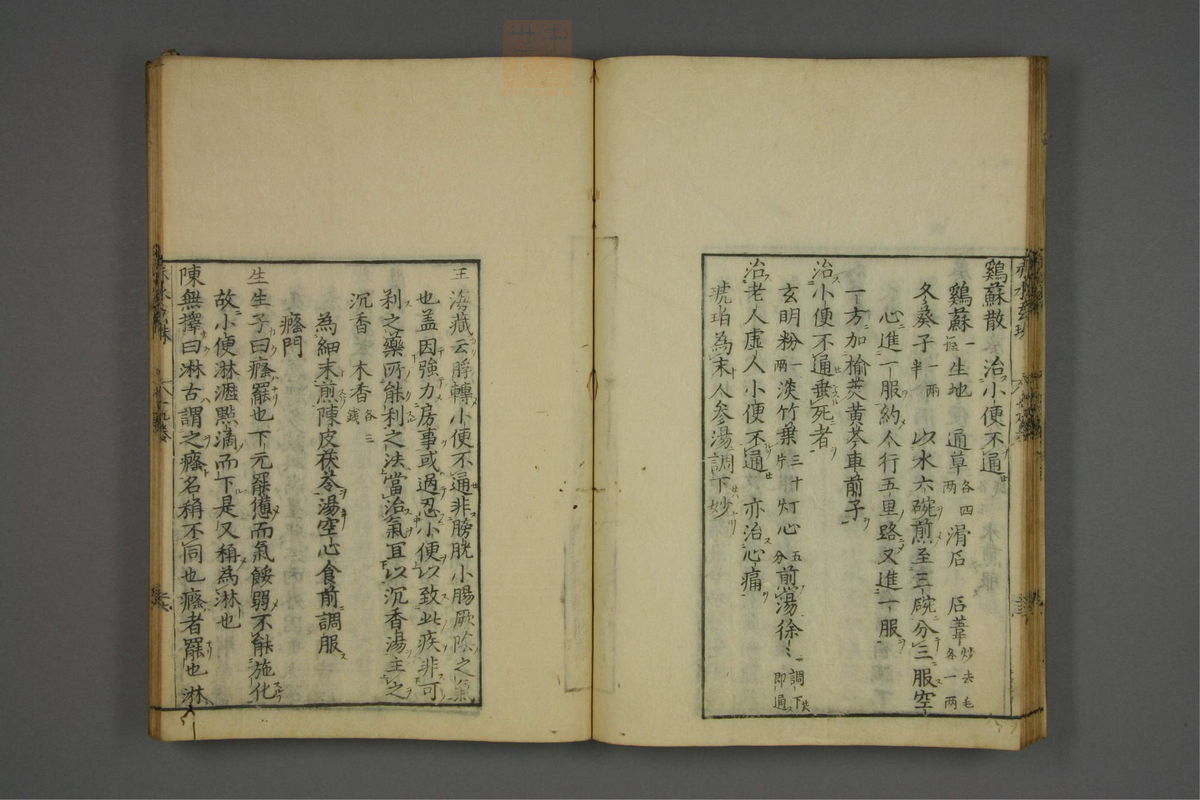 鷄蘇散 治小便不通
鷄蘇一握 生地 通草各四两 滑石 石葦炒去毛各一两
冬葵子一两半 以水六碗煎至三碗分三服空
心進一服約人行五里路又進一服
一方加榆莢黄芩車前子
治小便不通垂死者
玄明粉一两 淡竹葉三十片 灯心五分 煎湯徐〻調下即通
治老人虚人小便不通 亦治心痛
琥珀為末人参湯調下妙
王海藏云脬轉小便不通非膀胱小腸厥陰之氣
也盖因強力房事或過忍小便以致此疾非可
利之藥所能利之法當治氣冝以沉香湯主之
沉香 木香各三錢
為細末煎陳皮茯苓湯空心食前調服
癃門
生生子曰癃罷也下元罷憊而氣餒弱不能施化
故小便淋瀝點滴而下是又稱為淋也
陳無擇曰淋古謂之癃名稱不同也癃者罷也淋